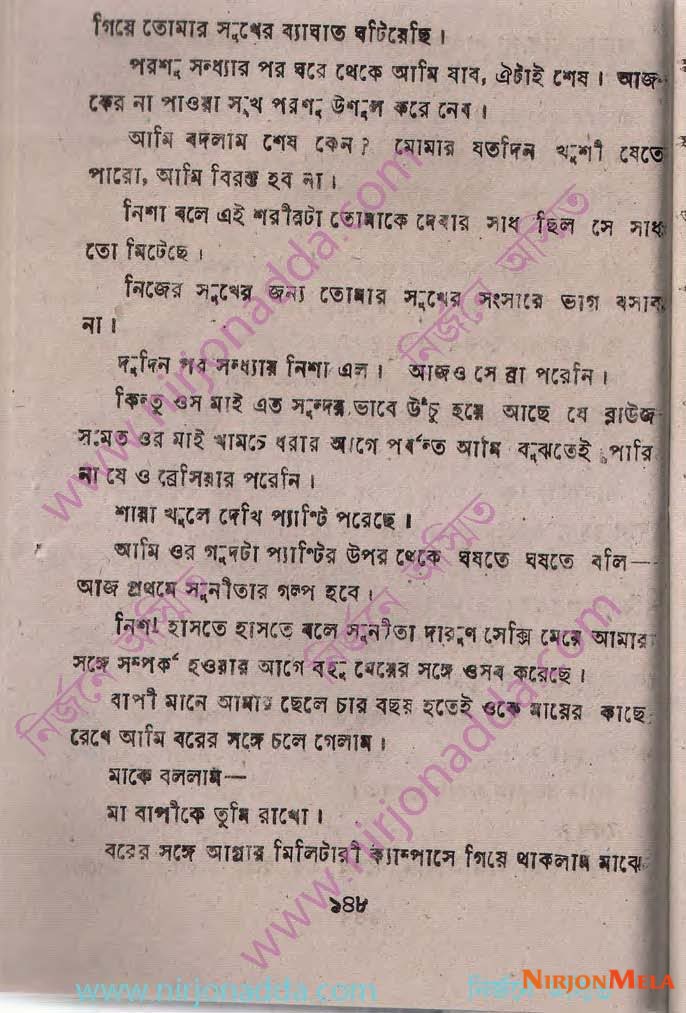 গিয়ে তোমার সুখের ব্যাঘাত ঘটিয়েছি।
পরশু সন্ধ্যার পর ঘরে থেকে আমি যাব, ঐটাই শেষ। আজ-
কের না পাওয়া সুখ পরশু উশুল করে নেব।
আমি বললাম শেষ কেন? মোমার যতদিন খুশী যেতে
পারো, আমি বিরক্ত হব না।
নিশা বলে এই শরীরটা তোমাকে দেবার সাধ ছিল সে সাধ
তো মিটেছে।
নিজের সুখের জন্য তোমার সুখের সংসারে ভাগ বসাব
না।
দুদিন পর সন্ধ্যায় নিশা এল। আজও সে ব্রা পরেনি।
কিন্তু ওস মাই এত সুন্দর ভাবে উঁচু হয়ে আছে যে ব্লাউজ
সমেত ওর মাই খামচে ধরার আগে পর্যন্ত আমি বুঝতেই পারি
না যে ও ব্রেসিয়ার পরেনি।
শায়া খুলে দেখি প্যান্টি পরেছে।
আমি ওর গুদটা প্যান্টির উপর থেকে ঘষতে ঘষতে বলি—
আজ প্রথমে সুনীতার গল্প হবে।
নিশা হাসতে হাসতে বলে সুনীতা দারুণ সেক্সি মেয়ে আমার
সঙ্গে সম্পর্ক হওয়ার আগে বহু মেয়ের সঙ্গে ওসব করেছে।
বাপী মানে আমার ছেলে চার বছর হতেই ওকে মায়ের কাছে
রেখে আমি বরের সঙ্গে চলে গেলাম।
মাকে বললাম—
মা বাপীকে তুমি রাখো।
বরের সঙ্গে আগ্রার মিলিটারী ক্যাম্পাসে গিয়ে থাকলাম মাঝে
১৪৮
www.nirjonadda.com
নির্জনে অস্মিত
www.nirjonadda.com
নির্জনে অস্মিত
নির্জনে অস্মিত
www.nirjonadda.com
NIRJONMELA